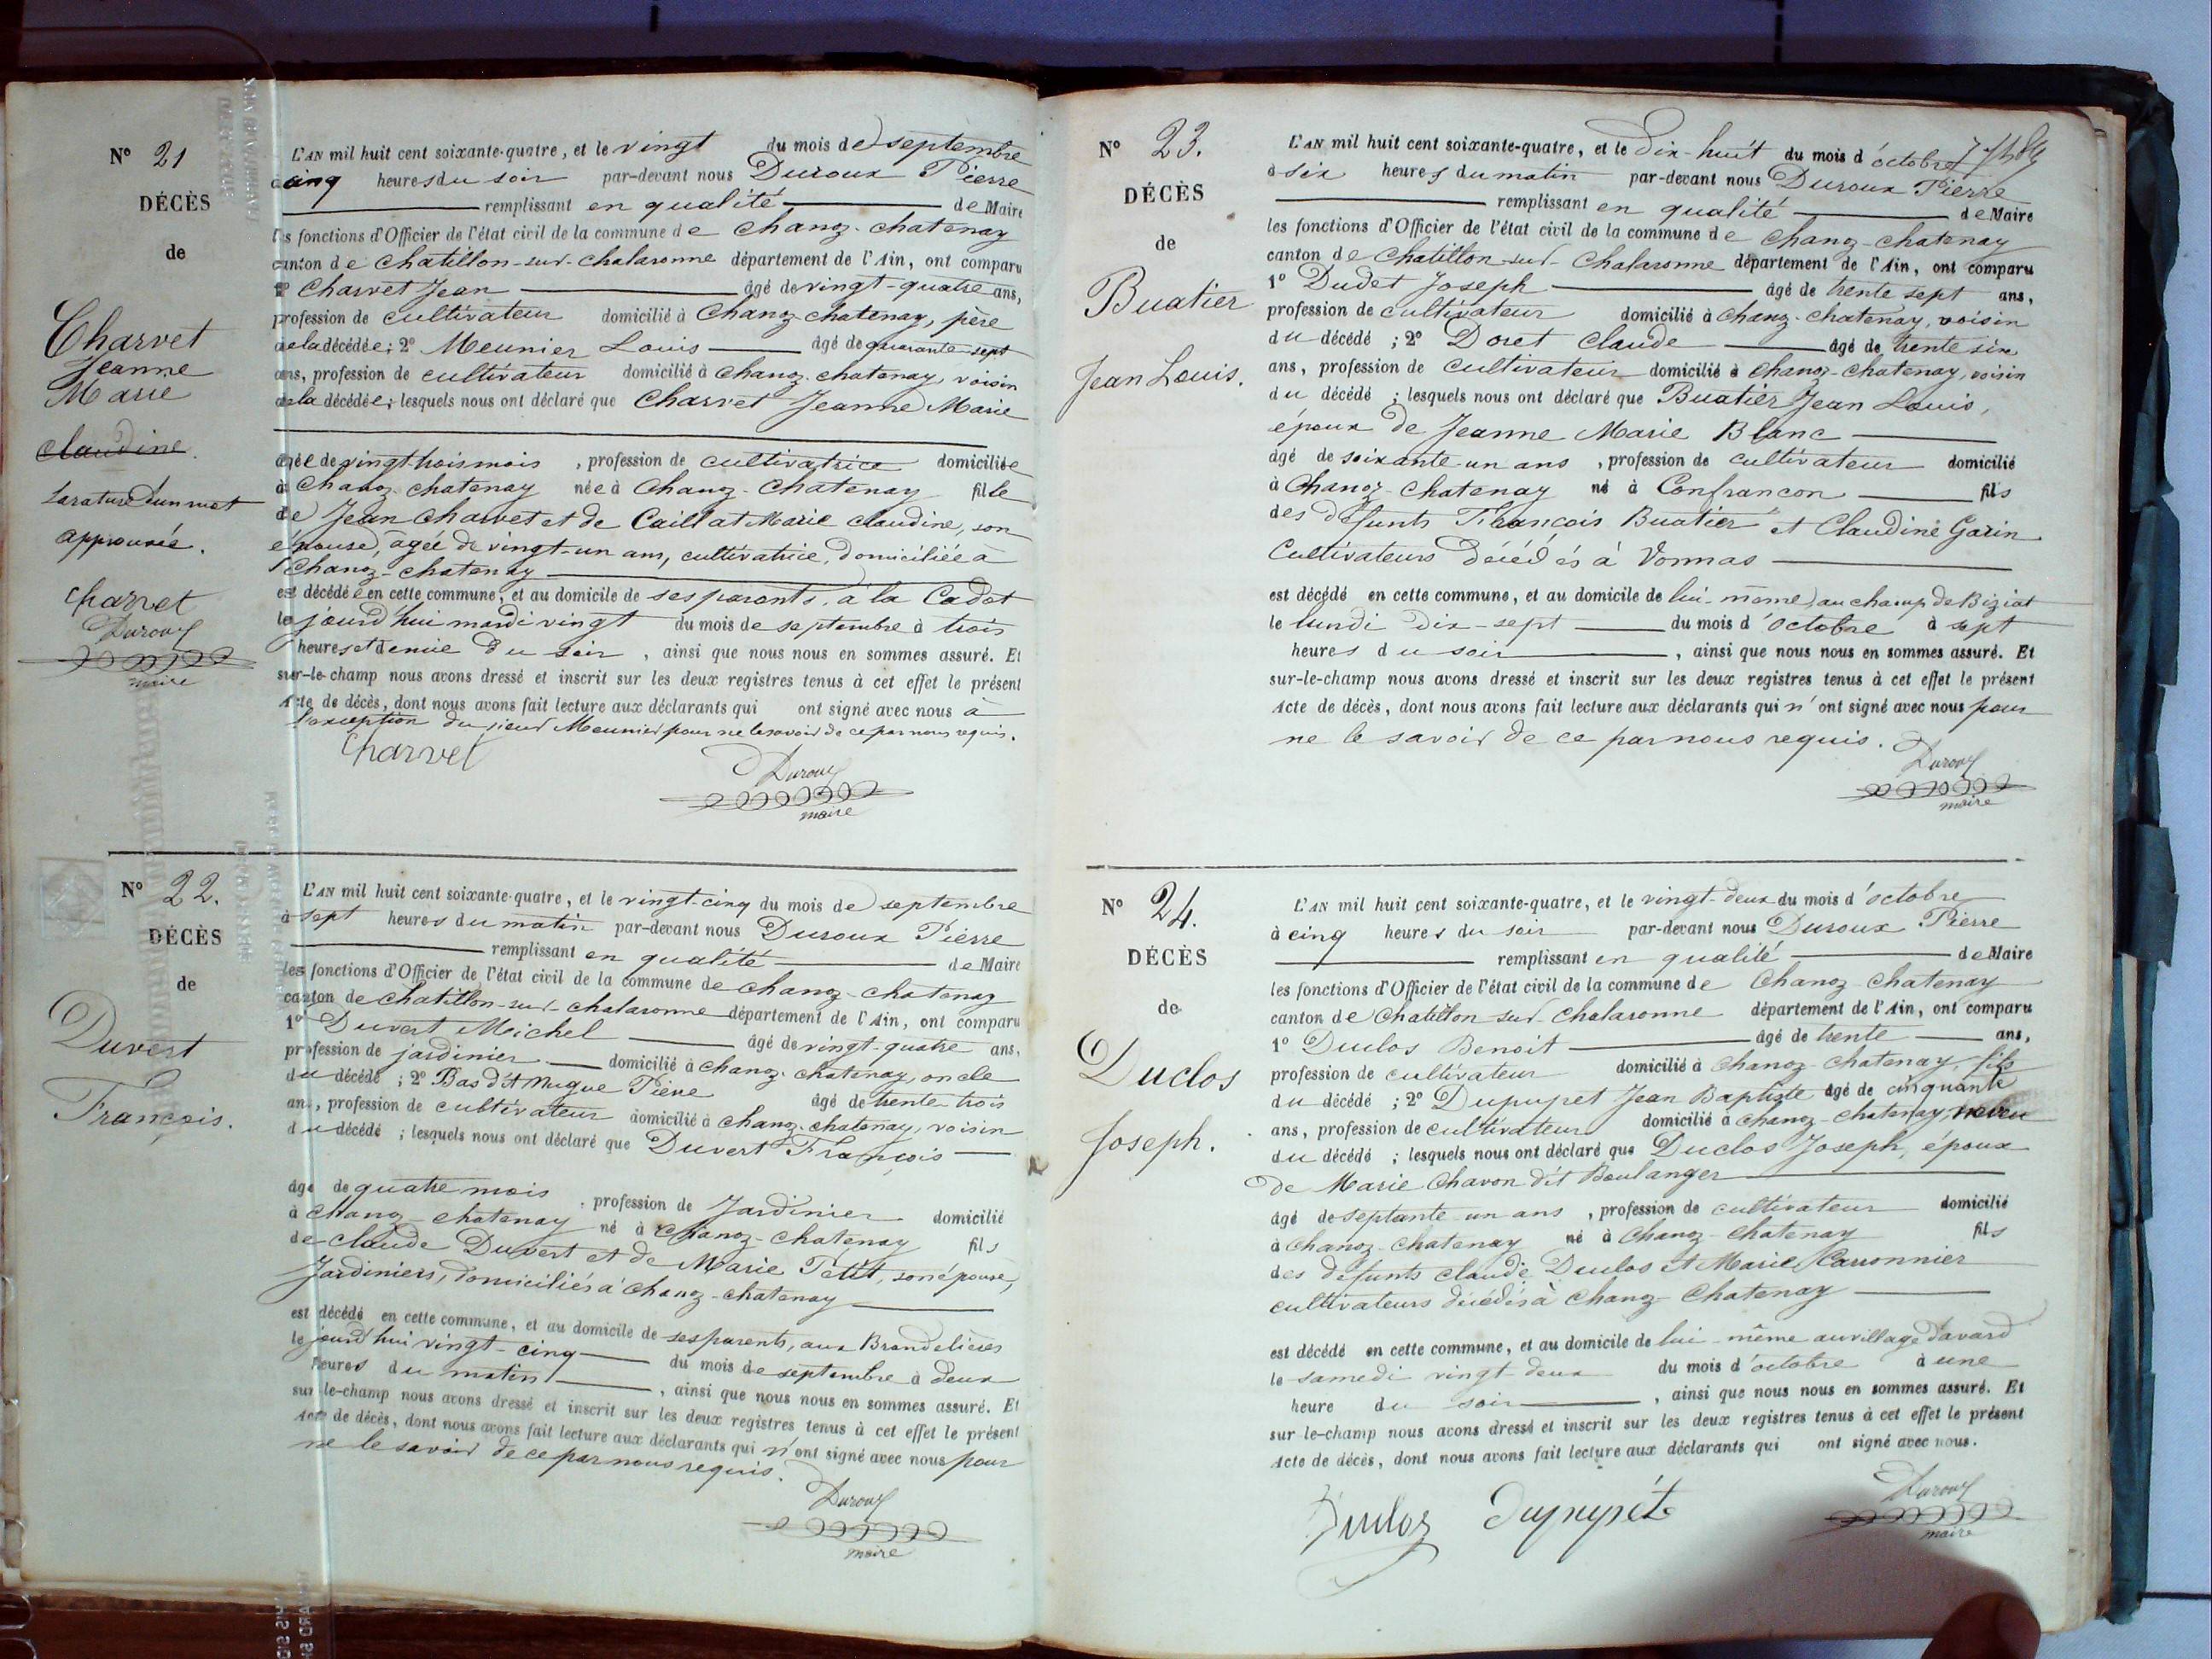 N° 21
DÉCÈS
de
Charvet
Jeanne
Marie
Claudine.
La rature d'un mot
approuvée.
Charvet
Duroux
maire
L'AN mil huit cent soixante-quatre, et le vingt du mois de septembre
à cinq heures du soir par-devant nous Duroux Pierre
remplissant en qualité de Maire
les fonctions d'Officier de l'état civil de la commune de Chanoz-chatenay
canton de Chatillon-sur-Chalaronne département de l'Ain, ont comparu
1° Charvet Jean âgé de vingt-quatre ans,
profession de cultivateur domicilié à Chanoz-chatenay, père
de la décédée; 2° Meunier Louis âgé de quarante-sept
ans, profession de cultivateur domicilié à Chanoz-chatenay, voisin
de la décédée; lesquels nous ont déclaré que Charvet Jeanne Marie
âgée de vingt trois mois, profession de cultivatrice domiciliée
à Chanoz-chatenay née à Chanoz-Chatenay fille
de Jean Charvet et de Caillat Marie Claudine, son
épouse, agée de vingt-un ans, cultivatrice, domiciliée à
Chanoz-chatenay
est décédée en cette commune, et au domicile de ses parents, à la Cadot
le jourd'hui mardi vingt du mois de septembre à trois
heures et demie du soir, ainsi que nous nous en sommes assuré. Et
sur-le-champ nous avons dressé et inscrit sur les deux registres tenus à cet effet le présent
Acte de décès, dont nous avons fait lecture aux déclarants qui ont signé avec nous à
l'exception du sieur Meunier pour ne le savoir de ce par nous requis.
Charvet
Duroux
maire
N° 22.
DÉCÈS
de
Duvert
François.
L'AN mil huit cent soixante-quatre, et le vingt-cinq du mois de septembre
à sept heures du matin par-devant nous Duroux Pierre
remplissant en qualité de Maire
les fonctions d'Officier de l'état civil de la commune de Chanoz-chatenay
canton de Chatillon-sur-chalaronne département de l'Ain, ont comparu
1° Duvert Michel âgé de vingt-quatre ans,
profession de jardinier domicilié à Chanoz-chatenay, oncle
du décédé; 2° Bas d't Mugue Pierre âgé de trente trois
ans, profession de cultivateur domicilié à chanoz-chatenay, voisin
du décédé; lesquels nous ont déclaré que Duvert François
âgé de quatre mois, profession de Jardinier domicilié
à Chanoz-chatenay né à Chanoz-chatenay fils
de Claude Duvert et de Marie Petit, son épouse,
Jardiniers, domiciliés à Chanoz-chatenay
est décédé en cette commune, et au domicile de ses parents, aux Brandelières
le jourd'hui vingt-cinq du mois de septembre à deux
heures du matin, ainsi que nous nous en sommes assuré. Et
sur le-champ nous avons dressé et inscrit sur les deux registres tenus à cet effet le présent
Acte de décès, dont nous avons fait lecture aux déclarants qui n'ont signé avec nous pour
ne le savoir de ce par nous requis.
Duroux
maire
N° 23.
DÉCÈS
de
Buatier
Jean Louis.
L'AN mil huit cent soixante-quatre, et le dix-huit du mois d'octobre
à six heures du matin par-devant nous Duroux Pierre
remplissant en qualité de Maire
les fonctions d'Officier de l'état civil de la commune de Chanoz-chatenay
canton de Chatillon-sur-Chalaronne département de l'Ain, ont comparu
1° Dudet Joseph âgé de trente sept ans,
profession de cultivateur domicilié à Chanoz-chatenay, voisin
du décédé; 2° Doret Claude âgé de trente six
ans, profession de cultivateur domicilié à Chanoz-chatenay, voisin
du décédé; lesquels nous ont déclaré que Buatier Jean Louis,
époux de Jeanne Marie Blanc
âgé de soixante-un ans, profession de cultivateur domicilié
à Chanoz-chatenay né à Confrancon fils
des défunts François Buatier et Claudine Garin
Cultivateurs décédés à Vonnas
est décédé en cette commune, et au domicile de lui-même, au champ de Biziat
le lundi dix-sept du mois d'octobre à sept
heures du soir, ainsi que nous nous en sommes assuré. Et
sur-le-champ nous avons dressé et inscrit sur les deux registres tenus à cet effet le présent
Acte de décès, dont nous avons fait lecture aux déclarants qui n'ont signé avec nous pour
ne le savoir de ce par nous requis.
Duroux
maire
N° 24.
DÉCÈS
de
Duclos
Joseph.
L'AN mil huit cent soixante-quatre, et le vingt-deux du mois d'octobre
à cinq heures du soir par-devant nous Duroux Pierre
remplissant en qualité de Maire
les fonctions d'Officier de l'état civil de la commune de Chanoz-chatenay
canton de Chatillon sur-Chalaronne département de l'Ain, ont comparu
1° Duclos Benoit âgé de trente ans,
profession de cultivateur domicilié à Chanoz-chatenay, fils
du décédé; 2° Dupupet Jean Baptiste âgé de cinquante
ans, profession de cultivateur domicilié à Chanoz-chatenay, neveu
du décédé; lesquels nous ont déclaré que Duclos Joseph, époux
de Marie Chavon dit Boulanger
âgé de septante-un ans, profession de cultivateur domicilié
à Chanoz-Chatenay né à Chanoz-chatenay fils
des défunts Claude Duclos et Marie Carronnier
cultivateurs décédés à Chanoz-Chatenay
est décédé en cette commune, et au domicile de lui-même au village d'avard
le samedi vingt-deux du mois d'octobre à une
heure du soir, ainsi que nous nous en sommes assuré. Et
sur le-champ nous avons dressé et inscrit sur les deux registres tenus à cet effet le présent
Acte de décès, dont nous avons fait lecture aux déclarants qui ont signé avec nous.
Duclos Dupupet
Duroux
maire